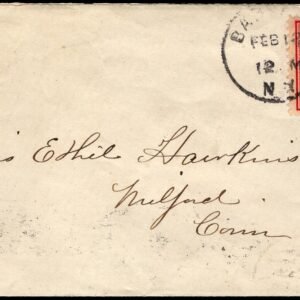 BA
FEB 12
12 M
N
s Ethel Hawkins
Milford
Conn